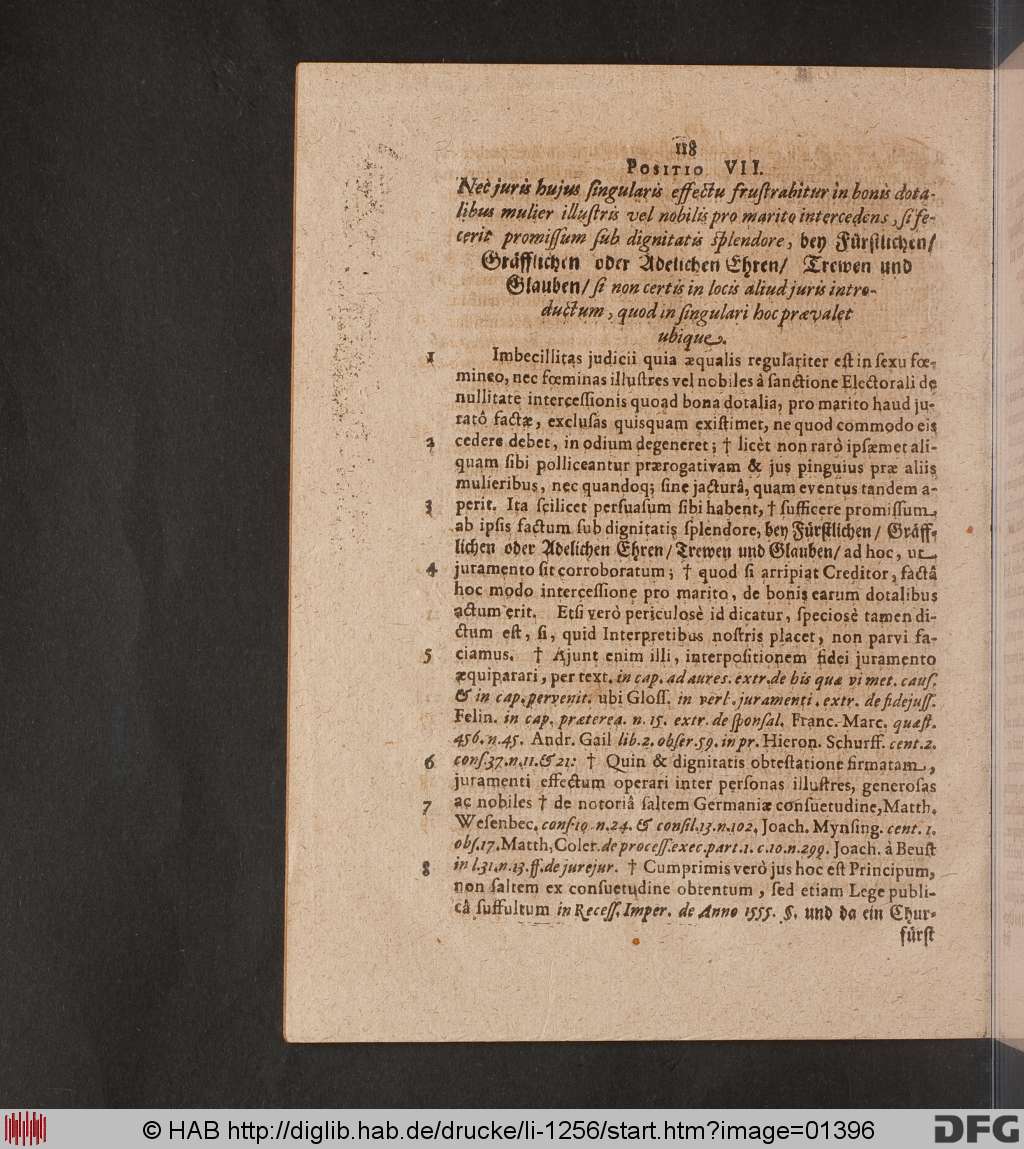 118
POSITIO VII.
Nec juris hujus ſingularis effectu fruſtrabitur in bonis dota-
libus mulier illuſtris vel nobilis pro marito intercedens, ſi fe-
cerit promiſſum ſub dignitatis ſplendore, bey Fürſtlichen/
Gräfflichen oder Adelichen Ehren/ Trewen und
Glauben/ ſi non certis in locis aliud juris intro-
ductum, quod in ſingulari hoc prævalet
ubique.
1 Imbecillitas judicii quia æqualis regulariter eſt in ſexu fœ-
mineo, nec fœminas illuſtres vel nobiles à ſanctione Electorali de
nullitate interceſſionis quoad bona dotalia, pro marito haud ju-
ratô factæ, excluſas quisquam exiſtimet, ne quod commodo eis
2 cedere debet, in odium degeneret; † licèt non rarò ipſæmet ali-
quam ſibi polliceantur prærogativam & jus pinguius præ aliis
mulieribus, nec quandoq; ſine jacturâ, quam eventus tandem a-
3 perit. Ita ſcilicet perſuaſum ſibi habent, † ſufficere promiſſum
ab ipſis factum ſub dignitatis ſplendore, bey Fürſtlichen/ Gräff-
lichen oder Adelichen Ehren/ Trewen und Glauben/ ad hoc, ut
4 juramento ſit corroboratum; † quod ſi arripiat Creditor, factâ
hoc modo interceſſione pro marito, de bonis earum dotalibus
actum erit. Etſi verò periculosè id dicatur, ſpeciosè tamen di-
ctum eſt, ſi, quid Interpretibus noſtris placet, non parvi fa-
5 ciamus. † Ajunt enim illi, interpoſitionem fidei juramento
æquiparari, per text. in cap. ad aures. extr. de his quæ vi met. cauſ.
& in cap. pervenit. ubi Gloſſ. in verb. juramenti. extr. de fidejuſſ.
Felin. in cap. præterea. n. 15. extr. de ſponſal. Franc. Marc. quæſt.
456. n. 45. Andr. Gail lib. 2. obſer. 59. in pr. Hieron. Schurff. cent. 2.
6 conſ. 37. n. 11. & 21: † Quin & dignitatis obteſtatione firmatam,
juramenti effectum operari inter perſonas illuſtres, generoſas
7 ac nobiles † de notoriâ ſaltem Germaniæ conſuetudine, Matth.
Weſenbec. conſ. 19. n. 24. & conſil. 13. n. 102. Joach. Mynſing. cent. 1.
obſ. 17. Matth, Coler. de proceſſ. exec. part. 1. c. 10. n. 299. Joach. à Beuſt
8 in l. 31. n. 13. ff. de jurejur. † Cumprimis verò jus hoc eſt Principum,
non ſaltem ex conſuetudine obtentum, ſed etiam Lege publi-
câ ſuffultum in Receſſ. Imper. de Anno 1555. §. und da ein Chur-
fürſt
© HAB http://diglib.hab.de/drucke/li-1256/start.htm?image=01396
DFG